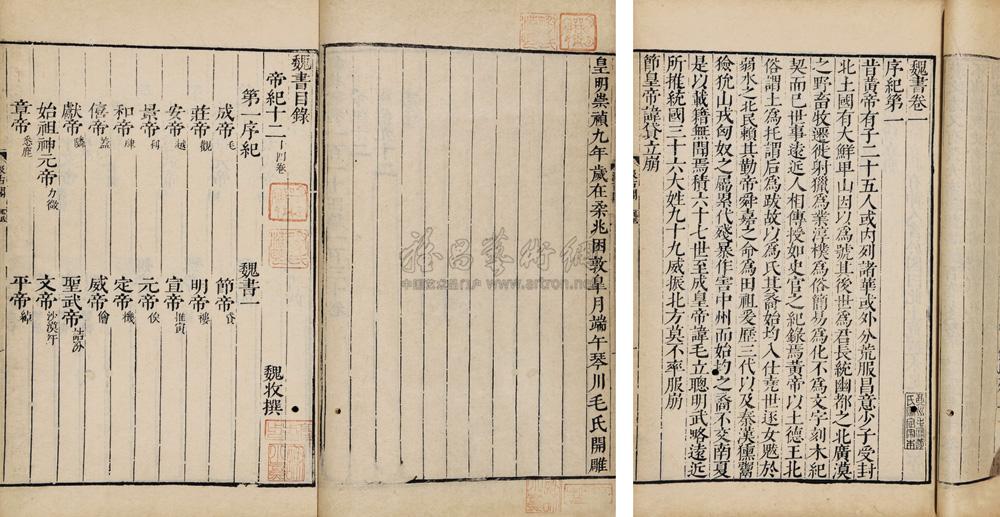 皇明崇禎九年歲在柔兆困敦皋月端午琴川毛氏開雕
魏書目錄
帝紀十二 十四卷 魏收撰
第一序紀 魏書一
成帝毛 節帝貸
莊帝觀 明帝樓
安帝越 宣帝推寅
景帝利 元帝俟
和帝肆 定帝機
僖帝蓋 威帝儈
獻帝隣 聖武帝詰汾
始祖神元帝力微 文帝沙漠汗
章帝悉鹿 平帝綽
魏書卷一
序紀第一
昔黃帝有子二十五人或内列諸華或外分荒服昌意少子受封
北土國有大鮮卑山因以為號其後世為君長統幽都之北廣漠
之野畜牧遷徙射獵為業淳樸為俗簡易為化不為文字刻木紀
契而巳世事遠近人相傳授如史官之紀錄焉黃帝以土德王北
俗謂土為托謂后為跋故以為氏其裔始均入仕堯世逐女魃於
弱水之北民賴其勤帝舜嘉之命為田祖爰歷三代以及秦漢獯鬻
獫狁山戎匈奴之屬累代殘暴作害中州而始均之裔不交南夏
是以載籍無聞焉積六十七世至成皇帝諱毛立聰明武略遠近
所推統國三十六大姓九十九威振北方莫不率服崩
節皇帝諱貸立崩
雅昌藝術網
www.artron.net